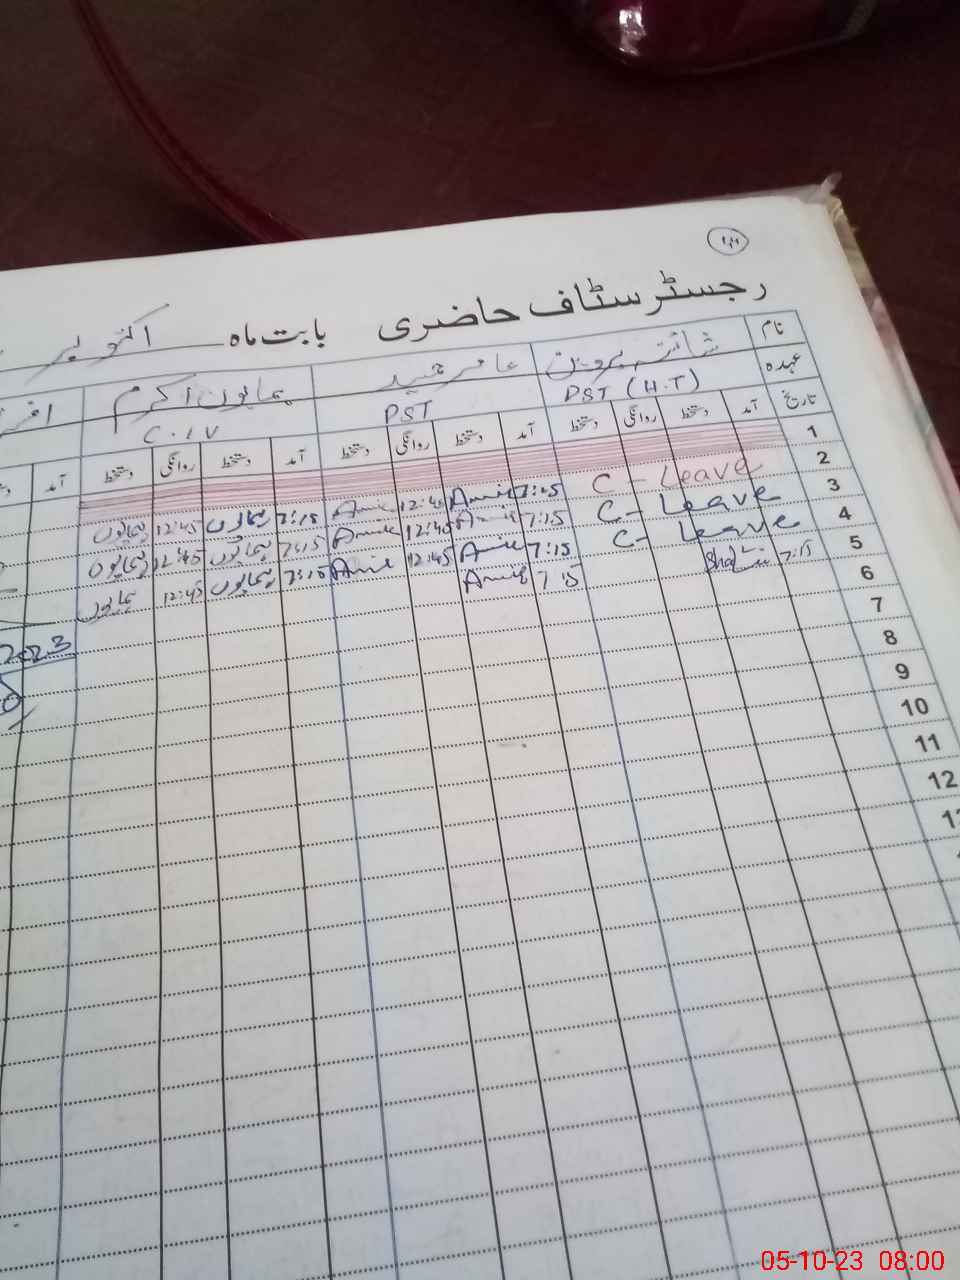 رجسٹر سٹاف حاضری بابت ماہ اکتوبر
نام شائستہ پروین عامر حمید ہمایوں اکرم
عہدہ PST (H.T) PST C.I.V
تاریخ آمد دستخط روانگی دستخط آمد دستخط روانگی دستخط آمد دستخط روانگی دستخط آمد
1
2 C - Leave 7:15 Amir 12:45 Amir 7:15 ہمایوں 12:45 ہمایوں
3 C - Leave 7:15 Amir 12:45 Amir 7:15 ہمایوں 12:45 ہمایوں
4 C - Leave 7:15 Amir 12:45 Amir 7:15 ہمایوں 12:45 ہمایوں
5 7:15 7:15 Amir
6
7
8
9
10
11
12
2023
05-10-23 08:00